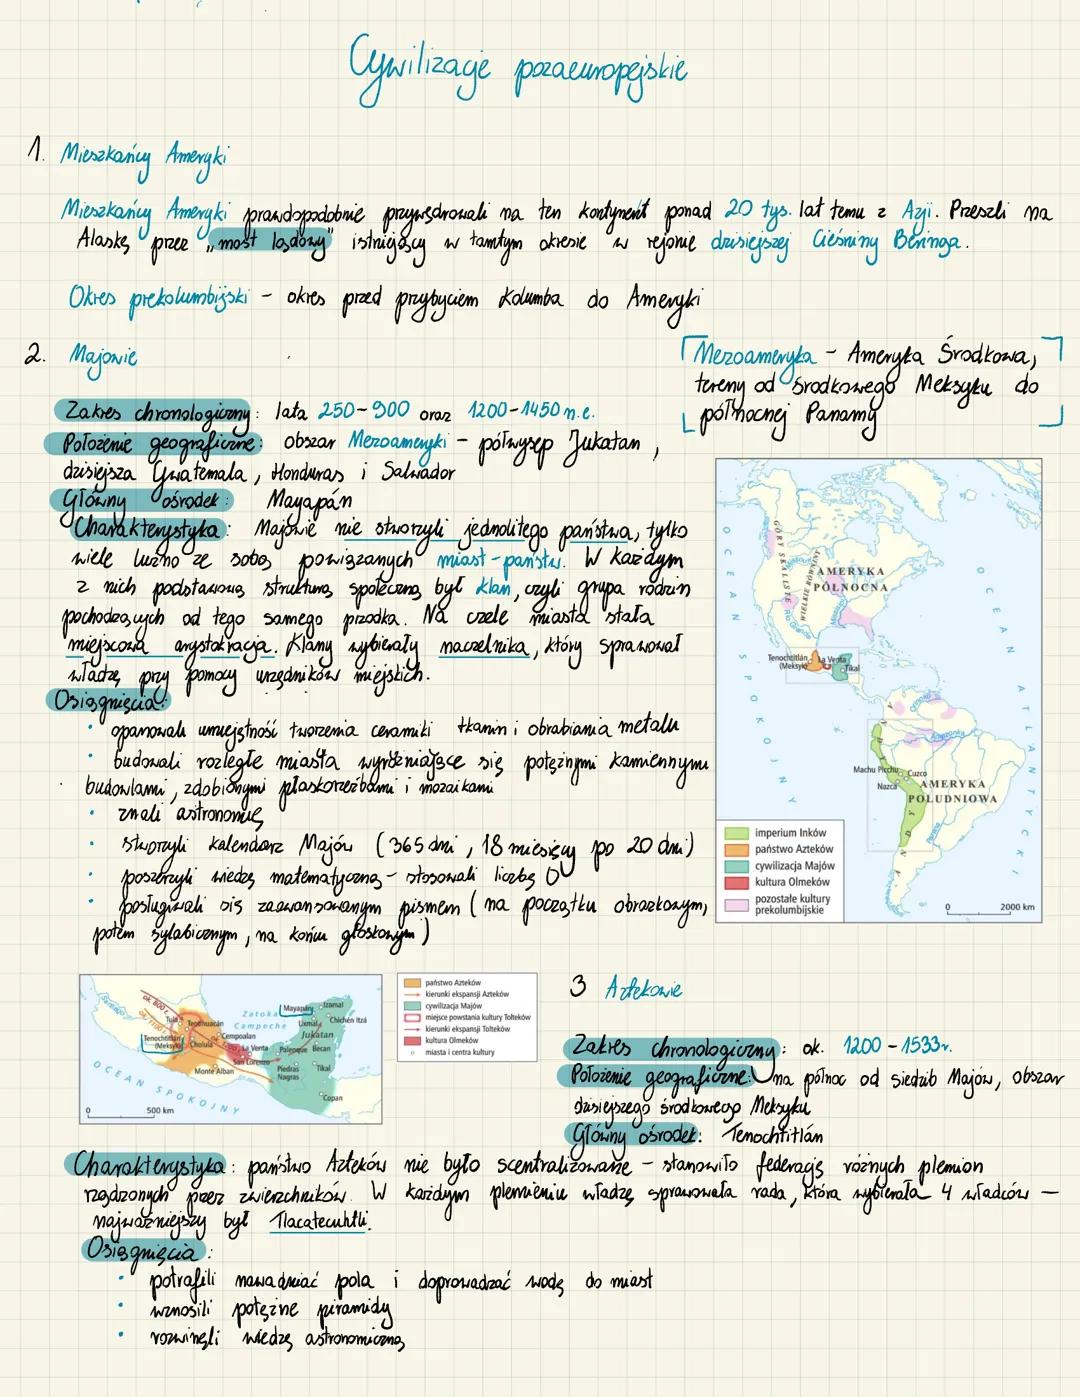 Cywilizacje pozaeuropejskie
1. Mieszkańcy Ameryki
Mieszkańcy Ameryki prawdopodobnie przywędrowali na ten kontynent ponad 20 tys. lat temu z Azji. Przeszli na
Alaskę przez „most lądowy" istniejący w tamtym okresie w rejonie dzisiejszej Cieśniny Beringa.
Okres prekolumbijski - okres przed przybyciem Kolumba do Ameryki
2. Majowie
Mezoameryka - Ameryka Środkowa,
tereny od środkowego Meksyku do
północnej Panamy
Zakres chronologiczny: lata 250-900 oraz 1200-1450 n.e.
Położenie geograficzne: obszar Mezoameryki - półwysep Jukatan,
dzisiejsza Gwatemala, Honduras i Salwador
Główny ośrodek: Mayapán
Charakterystyka: Majowie nie stworzyli jednolitego państwa, tylko
wiele luźno ze sobą powiązanych miast-państw. W każdym
z nich podstawową strukturą społeczną był klan, czyli grupa rodzin
pochodzących od tego samego przodka. Na czele miasta stała
miejscowa arystokracja. Klany wybierały naczelnika, który sprawował
władzę przy pomocy urzędników miejskich.
Osiągnięcia:
• opanowali umiejętność tworzenia ceramiki tkanin i obrabiania metalu
• budowali rozległe miasta wyróżniające się potężnymi kamiennymi
budowlami, zdobionymi płaskorzeźbami i mozaikami
• znali astronomię
• stworzyli kalendarz Majów (365 dni, 18 miesięcy po 20 dni)
• poszerzyli wiedzę matematyczną - stosowali liczbę 0
• posługiwali się zaawansowanym pismem (na początku obrazkowym,
potem sylabicznym, na końcu głoskowym)
OCEAN SPOKOJNY
OCEAN ATLANTYCKI
GÓRY SKALISTE
WIELKIE RÓWNINY
AMERYKA
PÓŁNOCNA
Rio Grande
Tenochtitlán
(Meksyk)
La Venta
Tikal
Orinoko
Amazonka
Machu Picchu
Cuzco
Nazca
AMERYKA
POŁUDNIOWA
ANDY
imperium Inków
państwo Azteków
cywilizacja Majów
kultura Olmeków
pozostałe kultury
prekolumbijskie
0 2000 km
Santiago
ok. 800 r.
ok. 1100 r.
Tula
Teotihuacán
Tenochtitlán
(Meksyk)
Cholula
Cempoalan
La Venta
San Lorenzo
Monte Alban
Zatoka
Campeche
Mayapán
Izamal
Uxmal
Chichén Itzá
Jukatan
Palenque
Becan
Piedras
Nagras
Tikal
Copan
OCEAN SPOKOJNY
0 500 km
państwo Azteków
kierunki ekspansji Azteków
cywilizacja Majów
miejsce powstania kultury Tolteków
kierunki ekspansji Tolteków
kultura Olmeków
miasta i centra kultury
3 Aztekowie
Zakres chronologiczny: ok. 1200 - 1533r.
Położenie geograficzne: na północ od siedzib Majów, obszar
dzisiejszego środkowego Meksyku
Główny ośrodek: Tenochtitlán
Charakterystyka: państwo Azteków nie było scentralizowane - stanowiło federację różnych plemion
rządzonych przez zwierzchników. W każdym plemieniu władzę sprawowała rada, która wybierała 4 władców -
najważniejszy był Tlacatecuhtli.
Osiągnięcia:
• potrafili nawadniać pola i doprowadzać wodę do miast
• wznosili potężne piramidy
• rozwinęli wiedzę astronomiczną